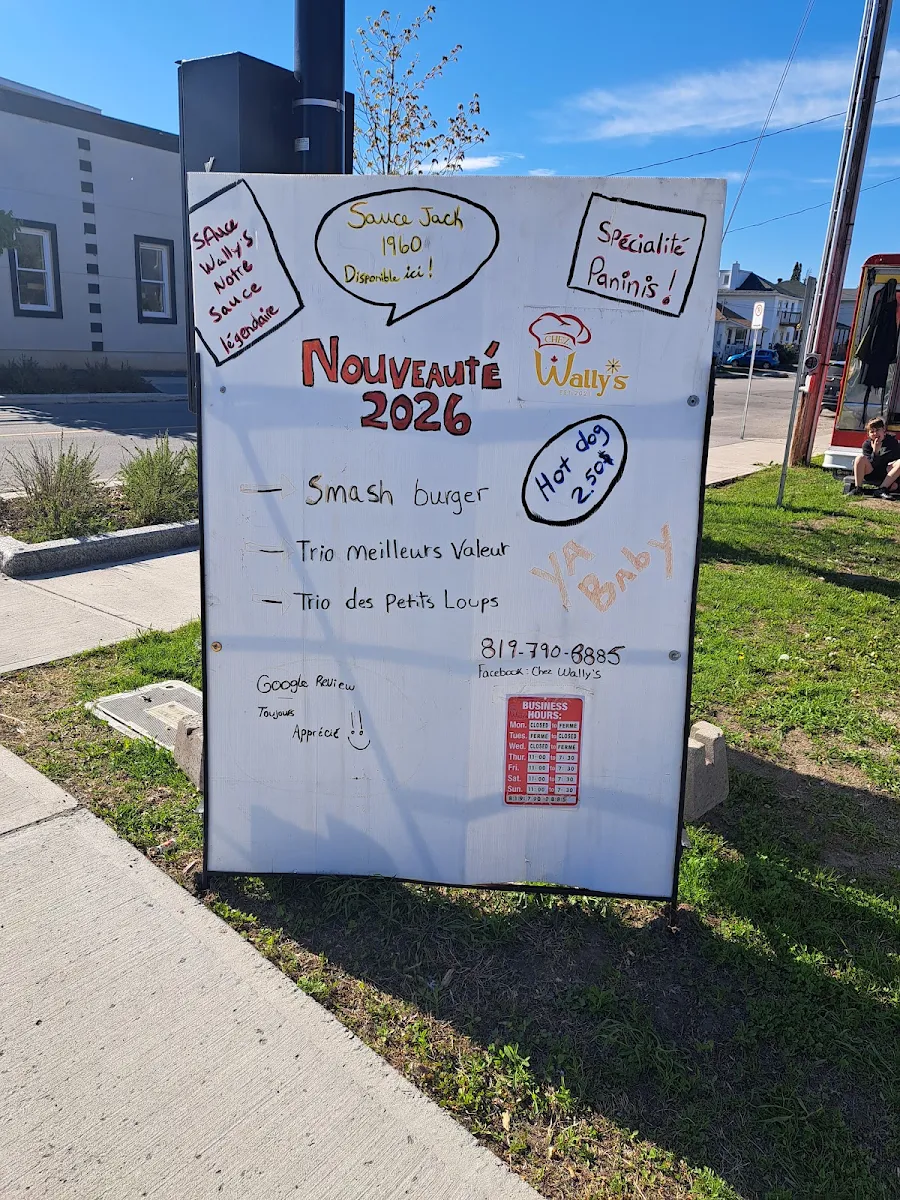 Sauce
Wally's
Notre
Sauce
légendaire
Sauce Jack
1960
Disponible ici!
Spécialité
Paninis!
Nouveauté
2026
CHEZ
Wally's
Hot dog
2.50$
- Smash burger
- Trio meilleurs Valeur
- Trio des Petits Loups
YA
Baby
819-790-8885
Facebook: Chez Wally's
Google Review
Toujours
Apprécié !!
BUSINESS
HOURS:
Mon. CLOSED to FERMÉ
Tues. FERMÉ to CLOSED
Wed. CLOSED to FERMÉ
Thur. 11:00 to 7:30
Fri. 11:00 to 7:30
Sat. 11:00 to 7:30
Sun. 11:00 to 7:30
819 790 8885